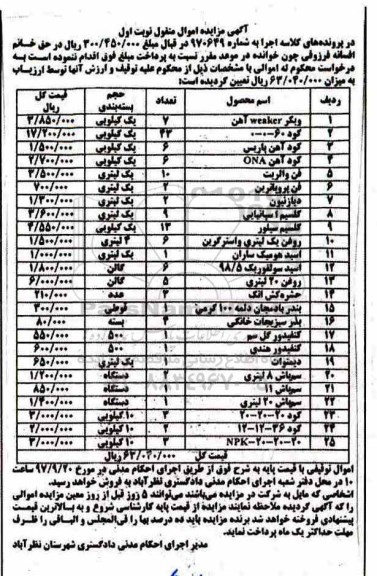 آگهی مزایده اموال منقول نوبت اول
در پرونده‌های کلاسه اجرا به شماره ۹۷۰۶۴۹ در قبال مبلغ ۳۰۰/۴۵۰/۰۰۰ ریال در حق خانم
افسانه فرزوقی چون خوانده در موعد مقرر نسبت به پرداخت مبلغ فوق اقدام ننموده است به
درخواست محکوم له اموالی با مشخصات ذیل از محکوم علیه توقیف و ارزش آنها توسط ارزیاب
به میزان ۶۳/۰۴۰/۰۰۰ ریال تعیین گردیده است:
ردیف اسم محصول تعداد حجم بسته‌بندی قیمت کل ریال
۱ ویکر weaker آهن ۷ یک کیلویی ۳/۸۵۰/۰۰۰
۲ کود ۶۰-۰-۰ ۴۳ یک کیلویی ۱۷/۲۰۰/۰۰۰
۳ کود آهن پاریس ۶ یک کیلویی ۱/۵۰۰/۰۰۰
۴ کود آهن ONA ۶ یک کیلویی ۲/۷۰۰/۰۰۰
۵ فن والریت ۱۰ یک لیتری ۳/۵۰۰/۰۰۰
۶ فن پروپاترین ۲ یک لیتری ۷۰۰/۰۰۰
۷ دیازنیون ۲ یک لیتری ۱/۳۰۰/۰۰۰
۸ کلسیم اسپانیایی ۹ یک لیتری ۳/۶۰۰/۰۰۰
۹ کلسیم سیلور ۱۳ یک کیلویی ۴/۵۵۰/۰۰۰
۱۰ روغن یک لیتری واسترگرین ۶ ۴ لیتری ۱/۵۰۰/۰۰۰
۱۱ اسید هومیک ساران ۱ یک لیتری ۱/۰۰۰/۰۰۰
۱۲ اسید سولفوریک ۹۸/۵ ۶ گالن ۱/۸۰۰/۰۰۰
۱۳ روغن ۲۰ لیتری ۵ گالن ۶/۰۰۰/۰۰۰
۱۴ حشره‌کش اتک ۳ عدد ۲۱۰/۰۰۰
۱۵ بذر بادمجان دلمه ۱۰۰ گرمی ۱ قوطی ۳۰۰/۰۰۰
۱۶ بذر سبزیجات خانگی ۴ بسته ۸۰/۰۰۰
۱۷ کنفیدور گل سم ۱ ۵۰۰ ۵۵۰/۰۰۰
۱۸ کنفیدور هندی ۱ ۵۰۰ ۶۰۰/۰۰۰
۱۹ دیمتوات ۱ یک لیتری ۶۵۰/۰۰۰
۲۰ سمپاش ۸ لیتری ۲ دستگاه ۱/۲۰۰/۰۰۰
۲۱ سمپاش ۱۱ ۱ دستگاه ۸۵۰/۰۰۰
۲۲ سمپاش ۲۰ لیتری ۱ دستگاه ۱/۴۰۰/۰۰۰
۲۳ کود ۲۰-۲۰-۲۰ ۳ ۱۰ کیلویی ۳/۰۰۰/۰۰۰
۲۴ کود ۳۶-۱۲-۱۲ ۲ ۱۰ کیلویی ۲/۰۰۰/۰۰۰
۲۵ NPK-۲۰-۲۰-۲۰ ۳ ۱۰ کیلویی ۳/۰۰۰/۰۰۰
قیمت کل ۶۳/۰۴۰/۰۰۰ ریال
اموال توقیفی با قیمت پایه به شرح فوق از طریق اجرای احکام مدنی در مورخ ۹۷/۹/۲۰ ساعت
۱۰ در محل دفتر شعبه اجرای احکام مدنی دادگستری نظرآباد به فروش خواهد رسید.
اشخاصی که مایل به شرکت در مزایده می‌باشند می‌توانند ۵ روز قبل از روز معین مزایده اموالی
را که آگهی گردیده ملاحظه نمایند مزایده از قیمت پایه کارشناسی شروع و به بالاترین قیمت
پیشنهادی فروخته خواهد شد برنده مزایده باید ده درصد بها را فی‌المجلس و الباقی را ظرف
مهلت حداکثر یک ماه پرداخت نماید.
مدیر اجرای احکام مدنی دادگستری شهرستان نظرآباد